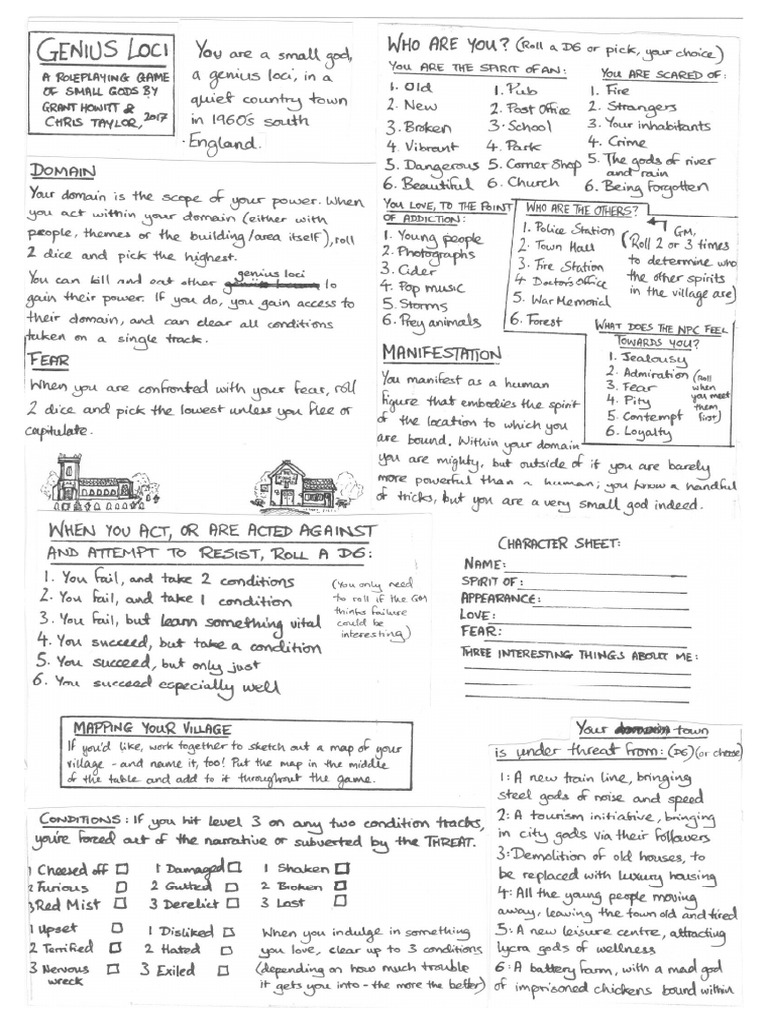 GENIUS LOCI
A ROLEPLAYING GAME
OF SMALL GODS BY
GRANT HOWITT &
CHRIS TAYLOR, 2017
You are a small god,
a genius loci, in a
quiet country town
in 1960's south
England.
DOMAIN
Your domain is the scope of your power. When
you act within your domain (either with
people, themes or the building/area itself), roll
2 dice and pick the highest.
You can kill and eat other genius loci to
gain their power. If you do, you gain access to
their domain, and can clear all conditions
taken on a single track.
FEAR
When you are confronted with your fear, roll
2 dice and pick the lowest unless you flee or
capitulate.
WHO ARE YOU? (Roll a D6 or pick, your choice)
YOU ARE THE SPIRIT OF AN:
1. Old
2. New
3. Broken
4. Vibrant
5. Dangerous
6. Beautiful
1. Pub
2. Post Office
3. School
4. Park
5. Corner Shop
6. Church
YOU ARE SCARED OF:
1. Fire
2. Strangers
3. Your inhabitants
4. Crime
5. The gods of river
and rain
6. Being Forgotten
YOU LOVE, TO THE POINT
OF ADDICTION:
1. Young people
2. Photographs
3. Cider
4. Pop music
5. Storms
6. Prey animals
WHO ARE THE OTHERS?
1. Police Station
2. Town Hall
3. Fire Station
4. Doctor's Office
5. War Memorial
6. Forest
GM,
(Roll 2 or 3 times
to determine who
the other spirits
in the village are)
WHAT DOES THE NPC FEEL
TOWARDS YOU?
1. Jealousy
2. Admiration
3. Fear
4. Pity
5. Contempt
6. Loyalty
(Roll
when
you meet
them
first)
MANIFESTATION
You manifest as a human
figure that embodies the spirit
of the location to which you
are bound. Within your domain
you are mighty, but outside of it you are barely
more powerful than a human; you know a handful
of tricks, but you are a very small god indeed.
WHEN YOU ACT, OR ARE ACTED AGAINST
AND ATTEMPT TO RESIST, ROLL A D6:
1. You fail, and take 2 conditions
2. You fail, and take 1 condition
3. You fail, but learn something vital
4. You succeed, but take a condition
5. You succeed, but only just
6. You succeed especially well
(You only need
to roll if the GM
thinks failure
could be
interesting)
CHARACTER SHEET:
NAME:
SPIRIT OF:
APPEARANCE:
LOVE:
FEAR:
THREE INTERESTING THINGS ABOUT ME:
MAPPING YOUR VILLAGE
If you'd like, work together to sketch out a map of your
village - and name it, too! Put the map in the middle
of the table and add to it throughout the game.
CONDITIONS: If you hit level 3 on any two condition tracks,
you're forced out of the narrative or subverted by the THREAT.
1 Cheesed off
2 Furious
3 Red Mist
1 Damaged
2 Gutted
3 Derelict
1 Shaken
2 Broken
3 Lost
1 Upset
2 Terrified
3 Nervous
wreck
1 Disliked
2 Hated
3 Exiled
When you indulge in something
you love, clear up to 3 conditions
(depending on how much trouble
it gets you into - the more the better)
Your town
is under threat from: (D6) (or choose)
1: A new train line, bringing
steel gods of noise and speed
2: A tourism initiative, bringing
in city gods via their followers
3: Demolition of old houses, to
be replaced with luxury housing
4: All the young people moving
away, leaving the town old and tired
5: A new leisure centre, attracting
lycra gods of wellness
6: A battery farm, with a mad god
of imprisoned chickens bound within